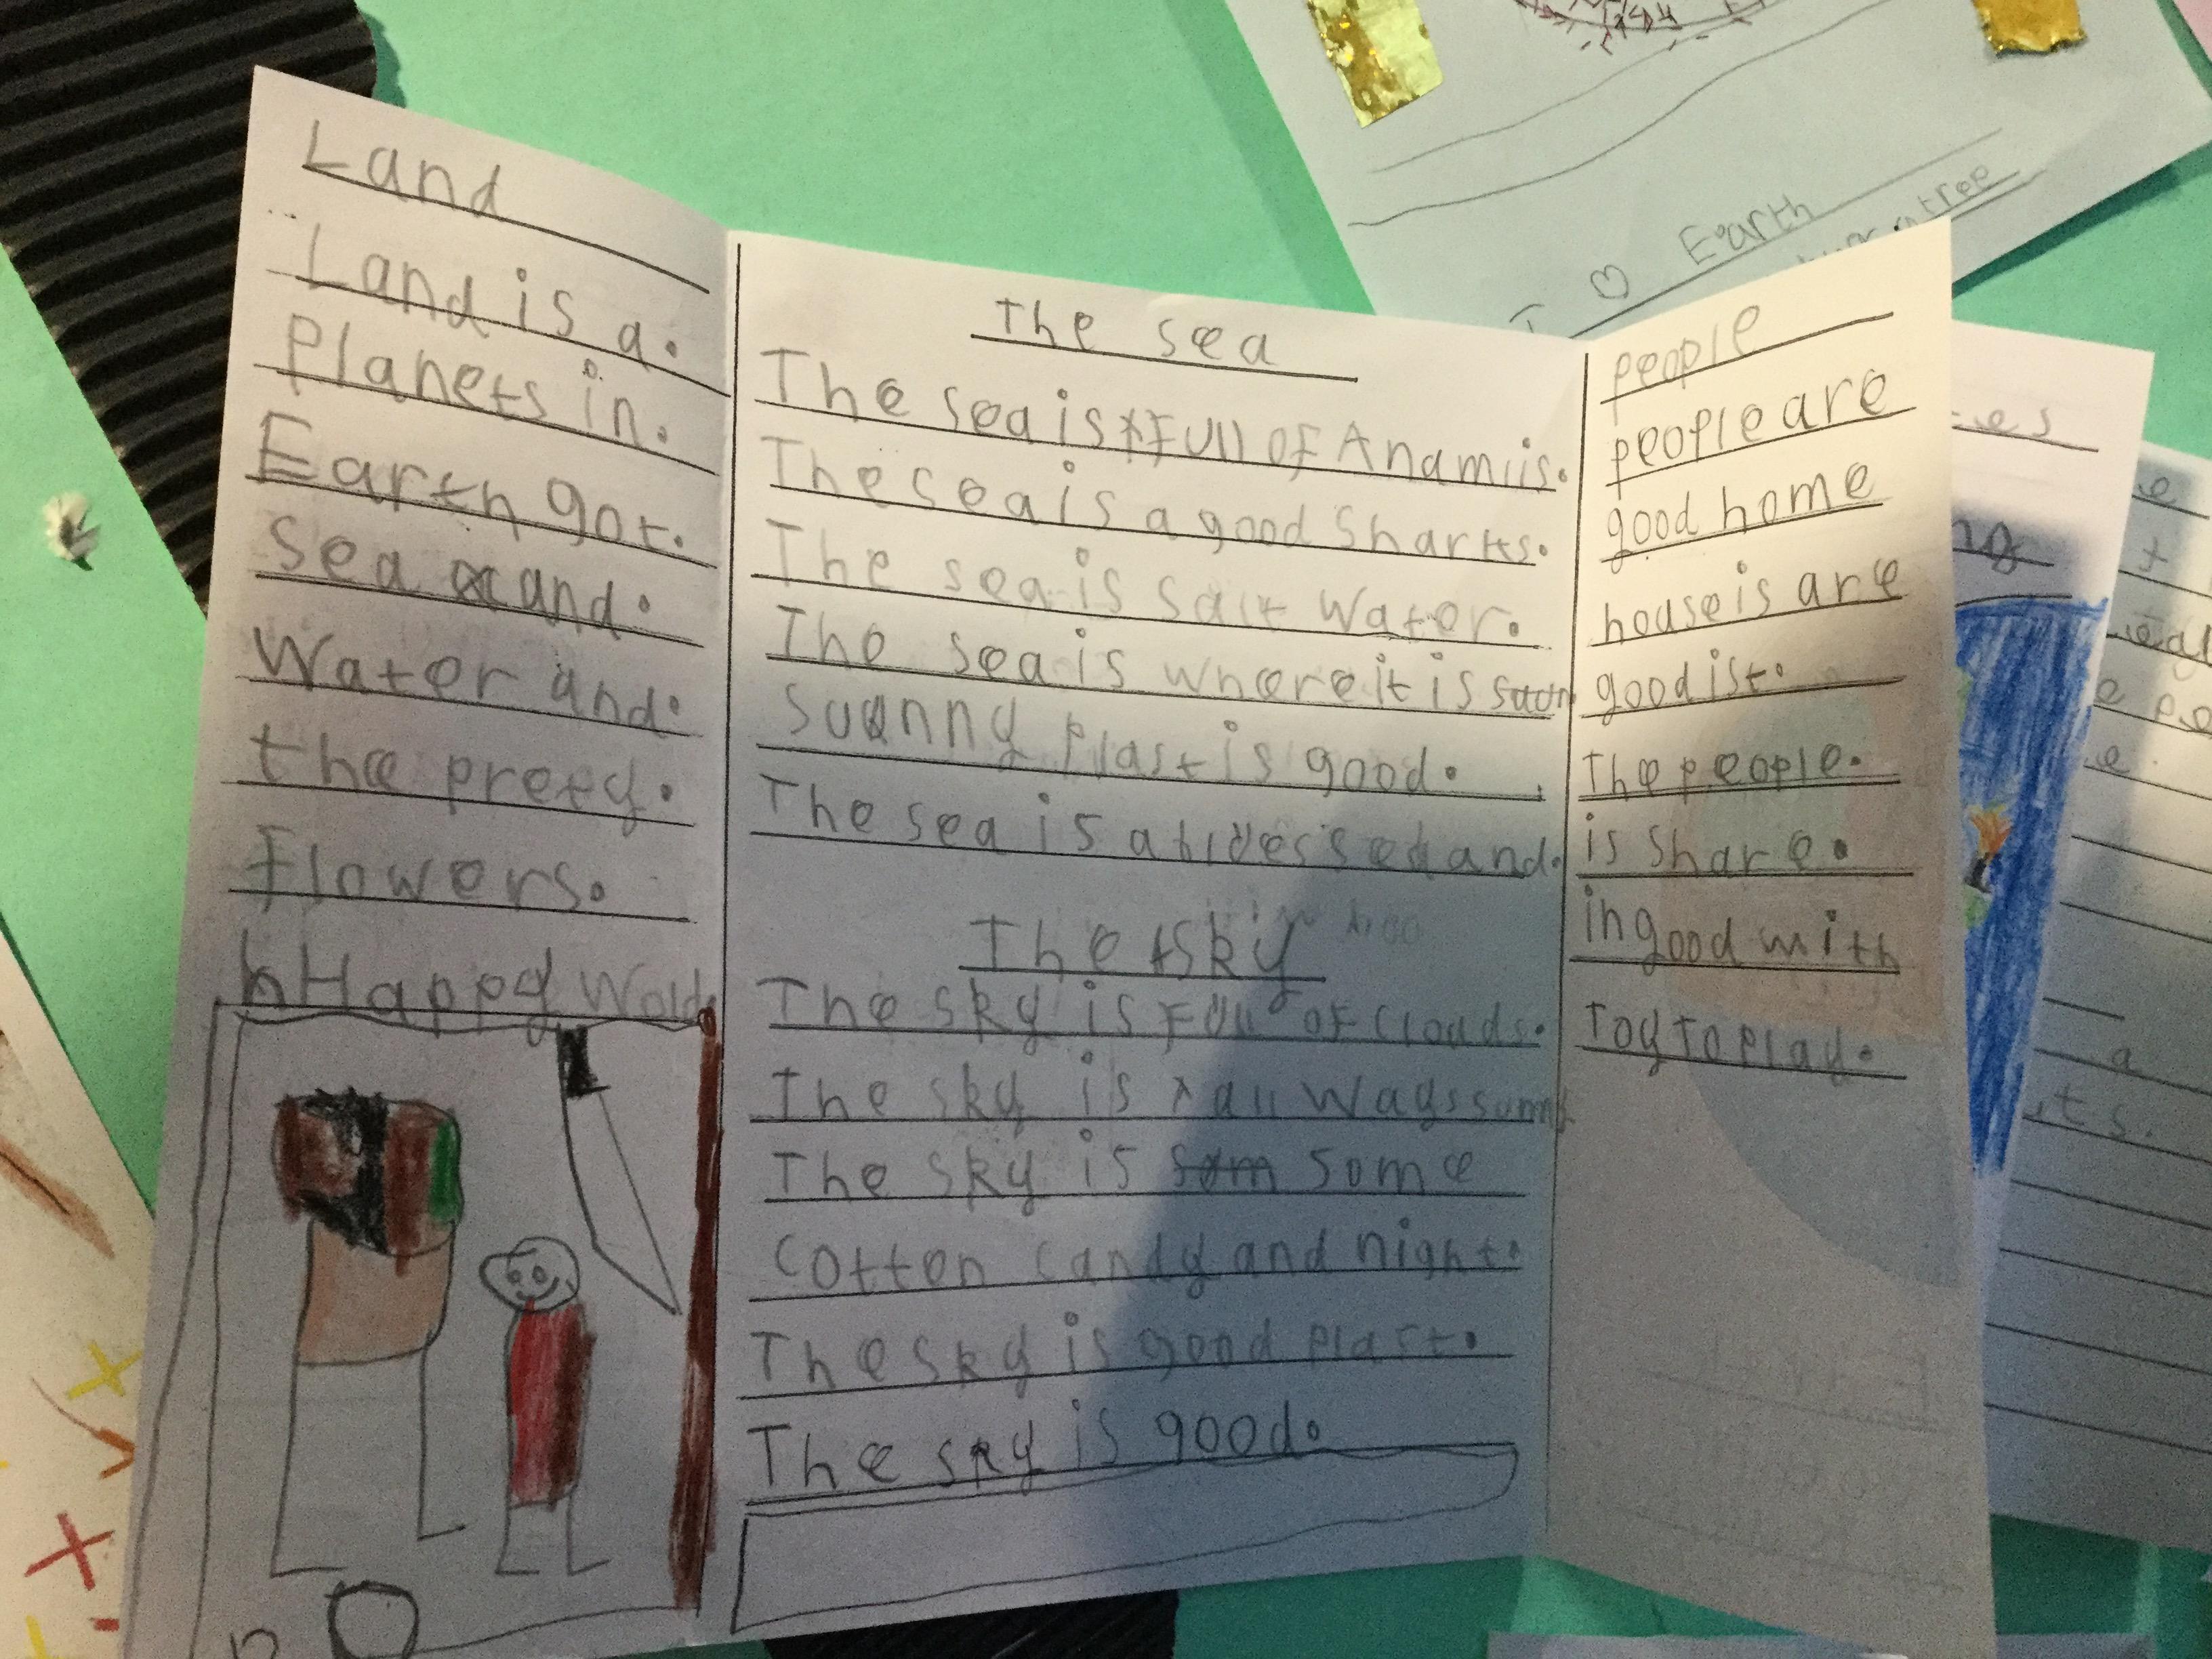 Land
Land is a.
Planets in.
Earth got.
sea and.
Water and.
the preey.
Flowers.
Happy Wold
The sea
The sea is Full OF Anamiis.
The sea is a good Sharks.
The sea is Salt Water.
The sea is where it is
suanny Plast is good.
The sea is and.
The sky
The sky is Full OF Clouds.
The sky is all ways
The sky is som some
Cotten Candy and night.
The sky is good Plast.
The sky is good.
people
people are
good home
house is are
good ist.
The people.
is Share.
in good with
Toy To Play.
I ♡ Earth
tree